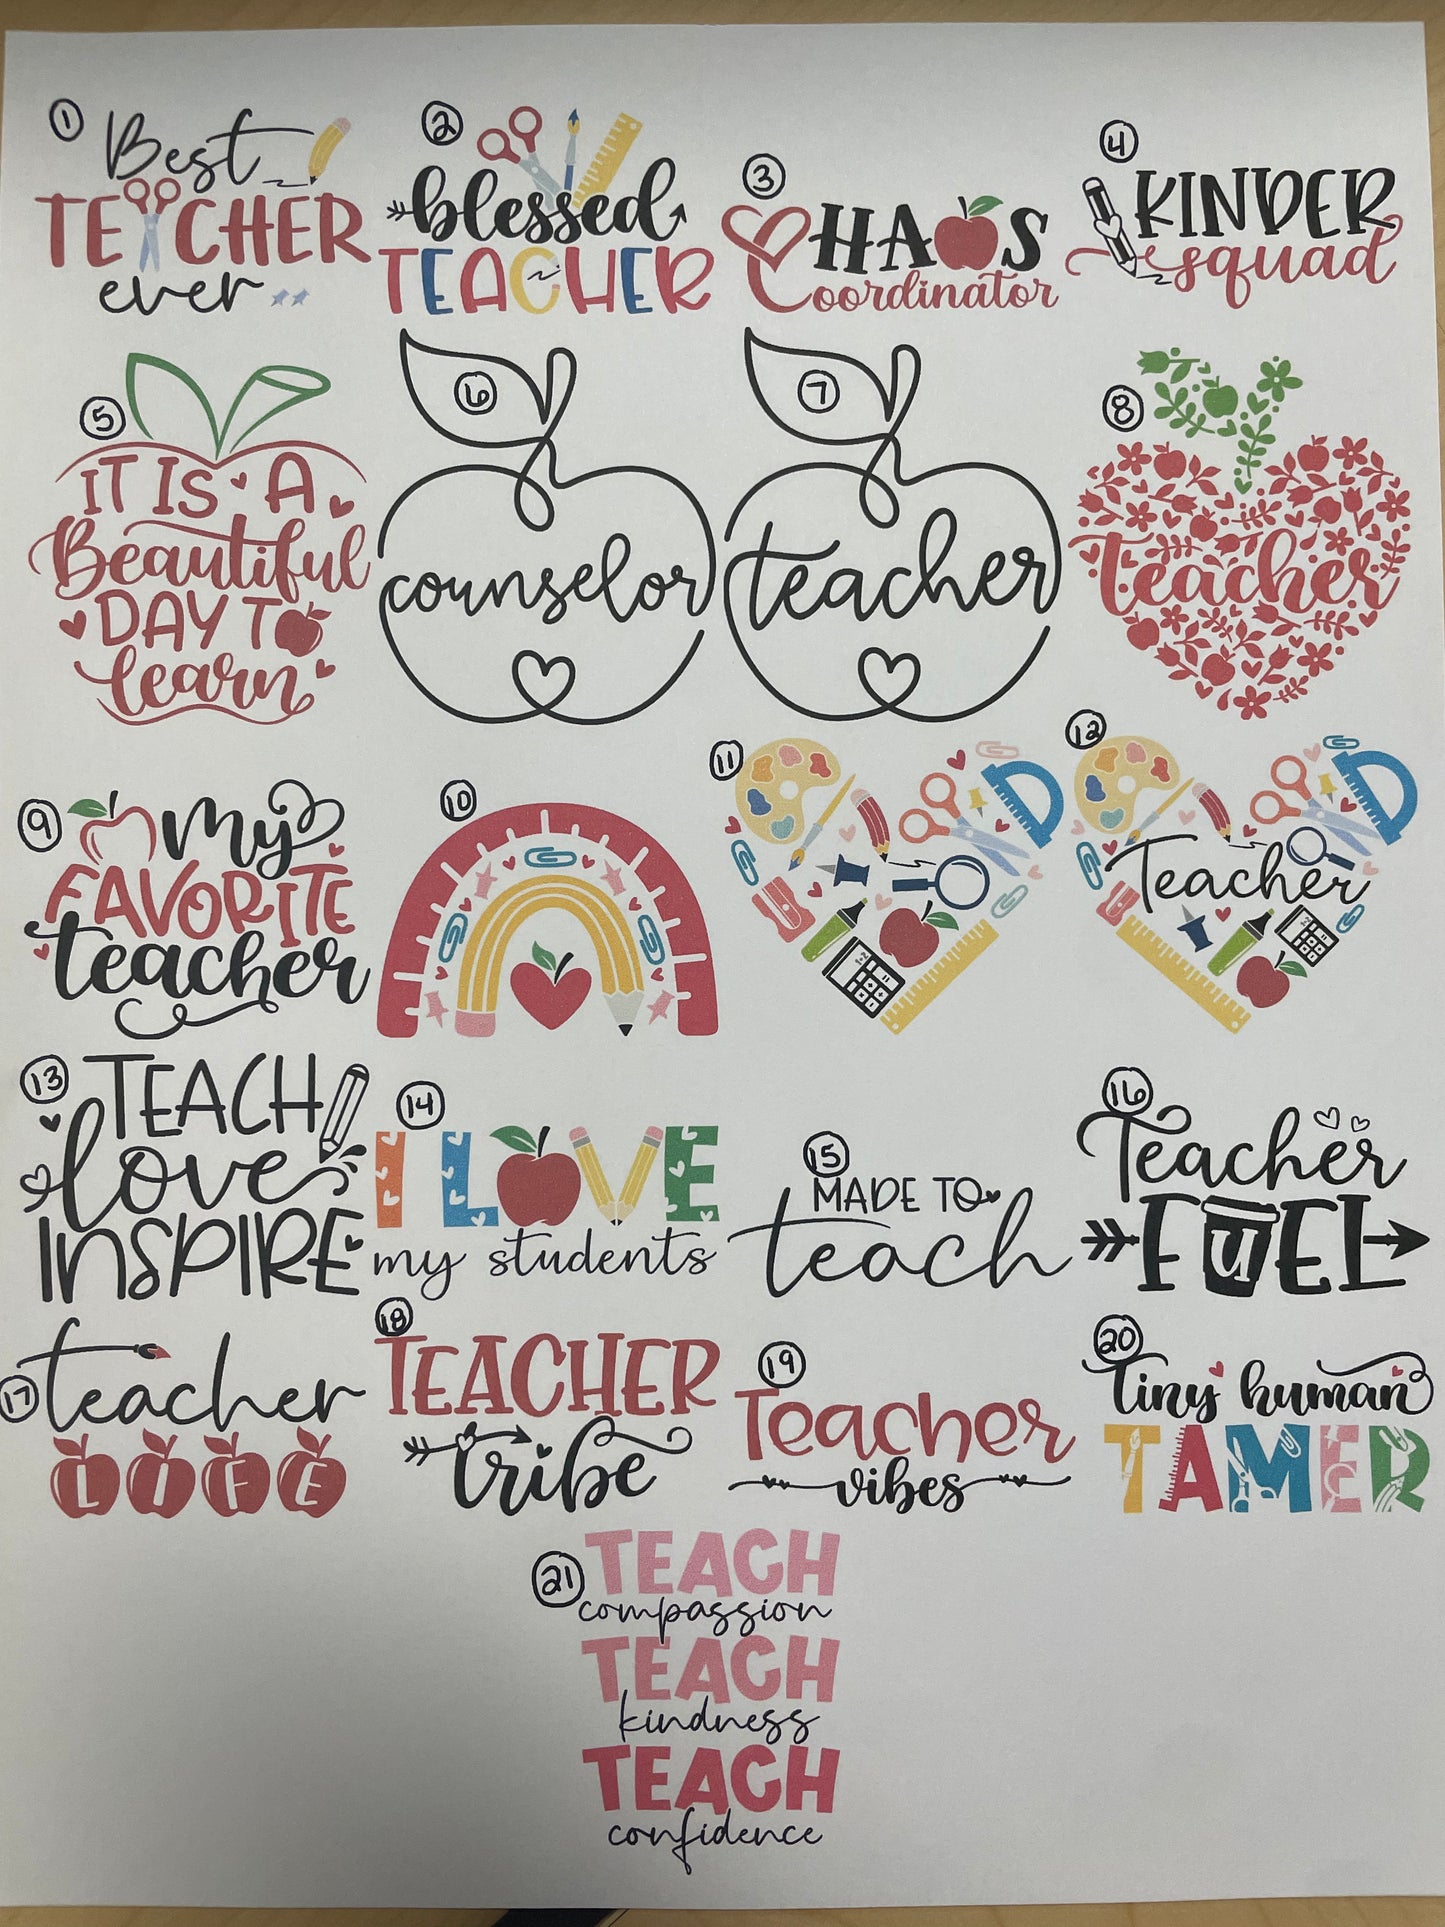 1
Best
TEACHER
ever
2
blessed
TEACHER
3
CHAOS
Coordinator
4
KINDER
squad
5
IT IS A
Beautiful
DAY TO
learn
6
counselor
7
teacher
8
teacher
9
my
FAVORITE
teacher
10
11
12
Teacher
13
TEACH
love
INSPIRE
14
I LOVE
my students
15
MADE TO
teach
16
Teacher
FUEL
17
teacher
LIFE
18
TEACHER
tribe
19
Teacher
vibes
20
tiny human
TAMER
21
TEACH
compassion
TEACH
kindness
TEACH
confidence